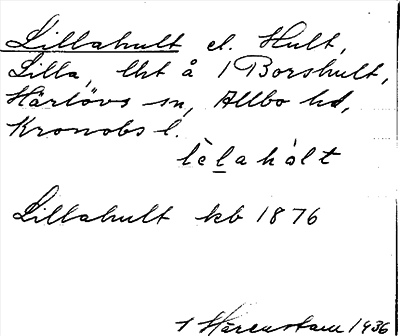 Lillahult el. Hult,
Lilla, lht å 1 Borshult,
Härlövs sn, Allbo hd,
Kronobs l.
lèlahált
Lillahult kb 1876
1936